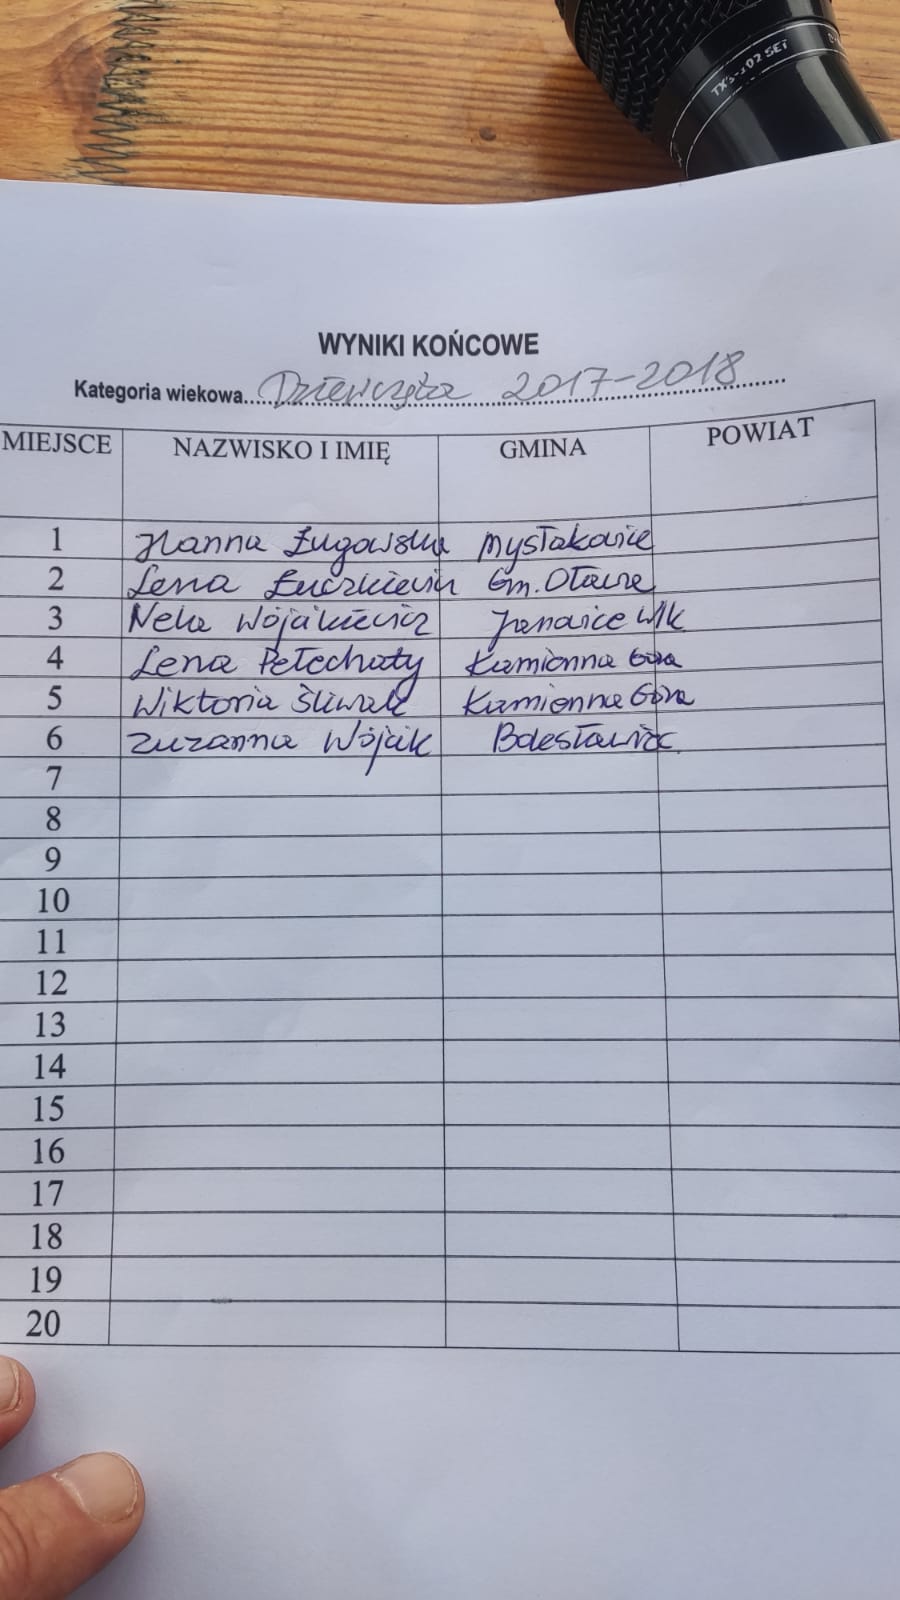 TXS-102 SET
WYNIKI KOŃCOWE
Kategoria wiekowa Dziewczęta 2017-2018
MIEJSCE NAZWISKO I IMIĘ GMINA POWIAT
1 Hanna Ługowska Mysłakowice
2 Lena Gm.
3 Nela Wójcikiewicz Janowice Wlk
4 Lena Pełechaty Kamienna Góra
5 Wiktoria Śliwak Kamienna Góra
6 Zuzanna Wójcik Bolesławiec
7
8
9
10
11
12
13
14
15
16
17
18
19
20